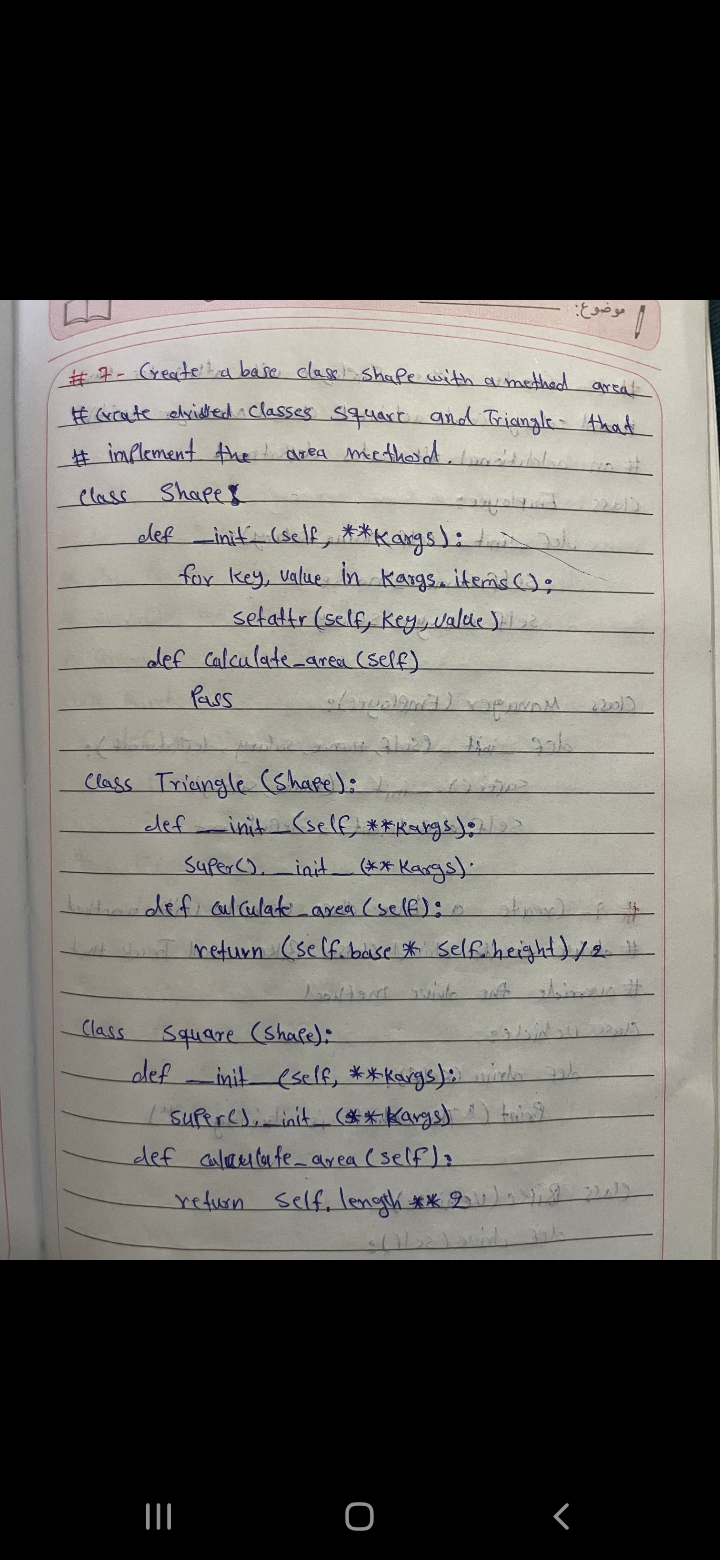 موضوع:
# 7- Create a base class shape with a method area
# Create divided classes square and Triangle that
# implement the area method.
class Shape:
def _init_(self, **Kargs):
for key, value in Kargs.items():
setattr(self, key, value)
def calculate_area(self)
Pass
Class Triangle (Shape):
def __init_(self, **Kargs):
super()._init_(**Kargs)
def calculate_area(self):
return (self.base * self.height)/2
Class square (shape):
def __init_(self, **Kargs):
super()._init_(**Kargs)
def calculate_area(self):
return self.length ** 2